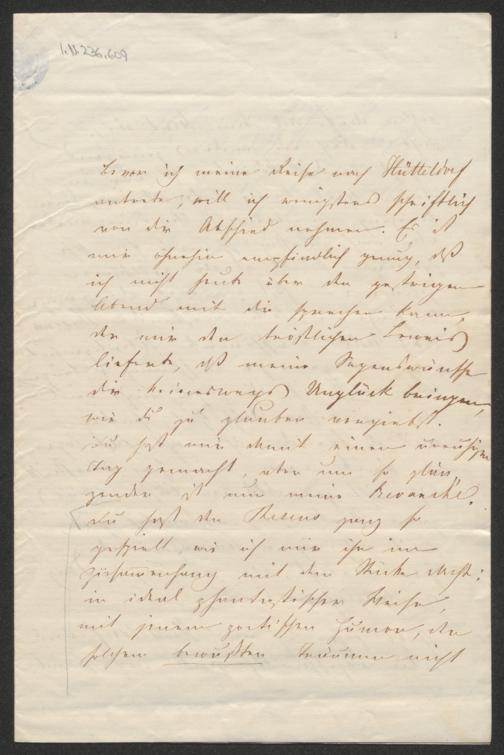 1.11.236.609
Bevor ich meine Reise nach Hütteldorf
antrete, will ich wenigstens schriftlich
von dir Abschied nehmen. Es ist
mir ohnehin empfindlich genug, daß
ich nicht heute über den gestrigen
Abend mit dir sprechen kann,
der mir den tröstlichen Beweis
lieferte, daß meine Segenswünsche
dir keineswegs Unglück bringen,
wie du zu glauben vorgiebst.
Du hast mir damit einen unruhigen
Tag gemacht, aber um so glän
zender ist nun meine Revanche.
Du hast den ganz so
gespielt, wie ich mir ihn im
Zusammenhang mit dem Stücke dachte:
in ideal phantastischer Weise,
mit jenem poetischen Humor, der
solchen bewußten Träumen nicht